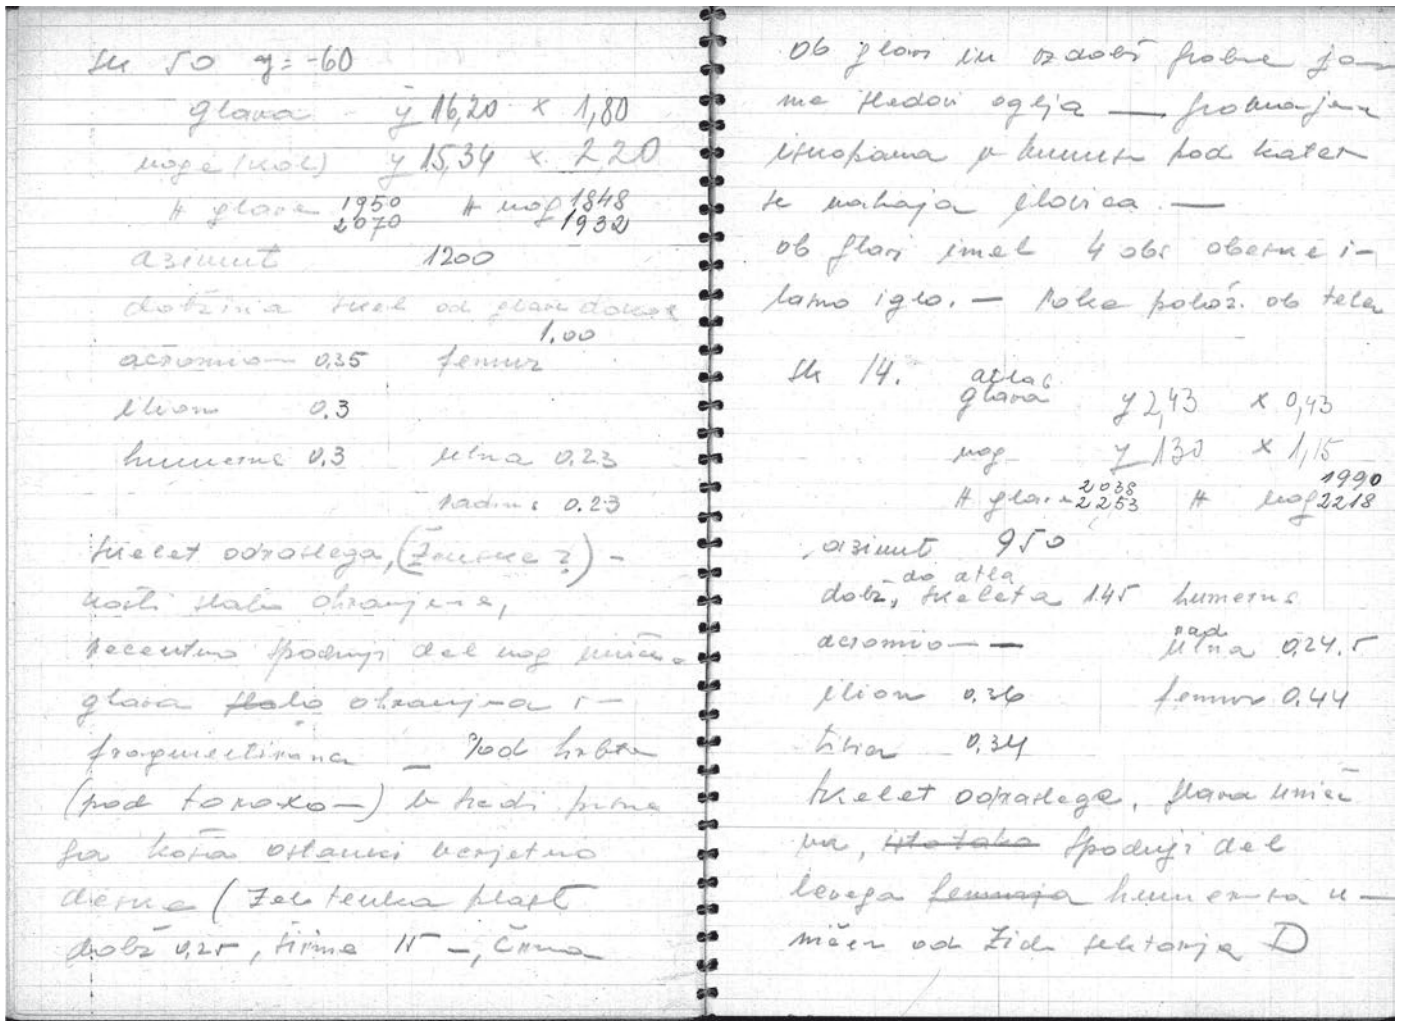 Sk 50 y = -60
glava - y 16,20 x 1,80
noge (kol) y 15,34 x 2,20
# glave 1950 # nog 1848
2070 1932
azimut 1200
dolžina skel od glave do
1.00
acromion 0.35 femur
ilion 0.3
humerus 0.3 ulna 0.23
radius 0.23
skelet odraslega, (ženske?) -
kosti slabo ohranjene,
recentno spodnji del nog
glava slabo ohranjena
fragmentirana - Pod hrbtom
(pod toraxom) v sredi prsne
ga koša ostanki verjetno
deske (Zelo tenka plast
dolž 0,25, širina 15 -, črna
ob glavi in vzdolž grobne ja
me sledovi oglja — grobna jama
iskopana v humusu pod katerim
se nahaja ilovica. —
ob glavi imel 4 obs obeske i-
lasno iglo. — Roke polož. ob telesu
Sk 14. atlas
glava y 2,43 x 0,43
nog y 130 x 1,15
# glave 2038 # nog 1990
2253 2218
azimut 950
do atla
dolž, skeleta 145 humerus
acromion — rad
ulna 0.24.5
ilion 0.36 femur 0.44
tibia 0.34
skelet odraslega, glava uniče
na, istotako spodnji del
levega femurja humerusa u-
ničen od zidu sektorja D